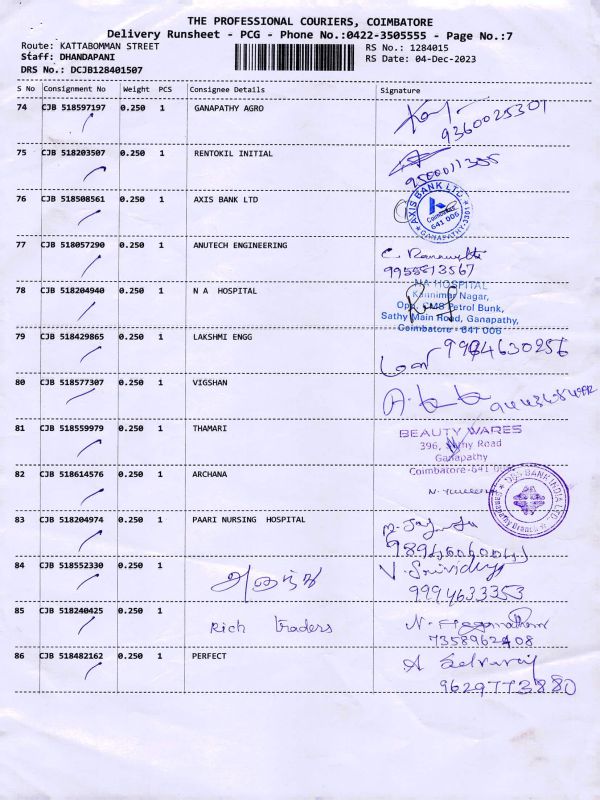 THE PROFESSIONAL COURIERS, COIMBATORE
Delivery Runsheet - PCG - Phone No.:0422-3505555 - Page No.:7
Route: KATTABOMMAN STREET
RS No.: 1284015
Staff: DHANDAPANI
RS Date: 04-Dec-2023
DRS No.: DCJB128401507
S No Consignment No Weight PCS Consignee Details Signature
74 CJB 518597197 0.250 1 GANAPATHY AGRO
9360025301
75 CJB 518203507 0.250 1 RENTOKIL INITIAL
76 CJB 518508561 0.250 1 AXIS BANK LTD
AXIS BANK LTD
Coimbatore
641 006
GANAPATHY-3301
77 CJB 518057290 0.250 1 ANUTECH ENGINEERING
9955813567
78 CJB 518204940 0.250 1 N A HOSPITAL
NA HOSPITAL
Kannimar Nagar,
Opp. CMS Petrol Bunk,
Sathy Main Road, Ganapathy,
Coimbatore - 641 006
79 CJB 518429865 0.250 1 LAKSHMI ENGG
80 CJB 518577307 0.250 1 VIGSHAN
81 CJB 518559979 0.250 1 THAMARI
BEAUTY WARES
396, Sathy Road
Ganapathy
Coimbatore-641 006
82 CJB 518614576 0.250 1 ARCHANA
DBS BANK INDIA LTD.
83 CJB 518204974 0.250 1 PAARI NURSING HOSPITAL
84 CJB 518552330 0.250 1
V. Srividhya
9994633353
85 CJB 518240425 0.250 1 Rich traders
7358962408
86 CJB 518482162 0.250 1 PERFECT
A Selvaraj
9629773880